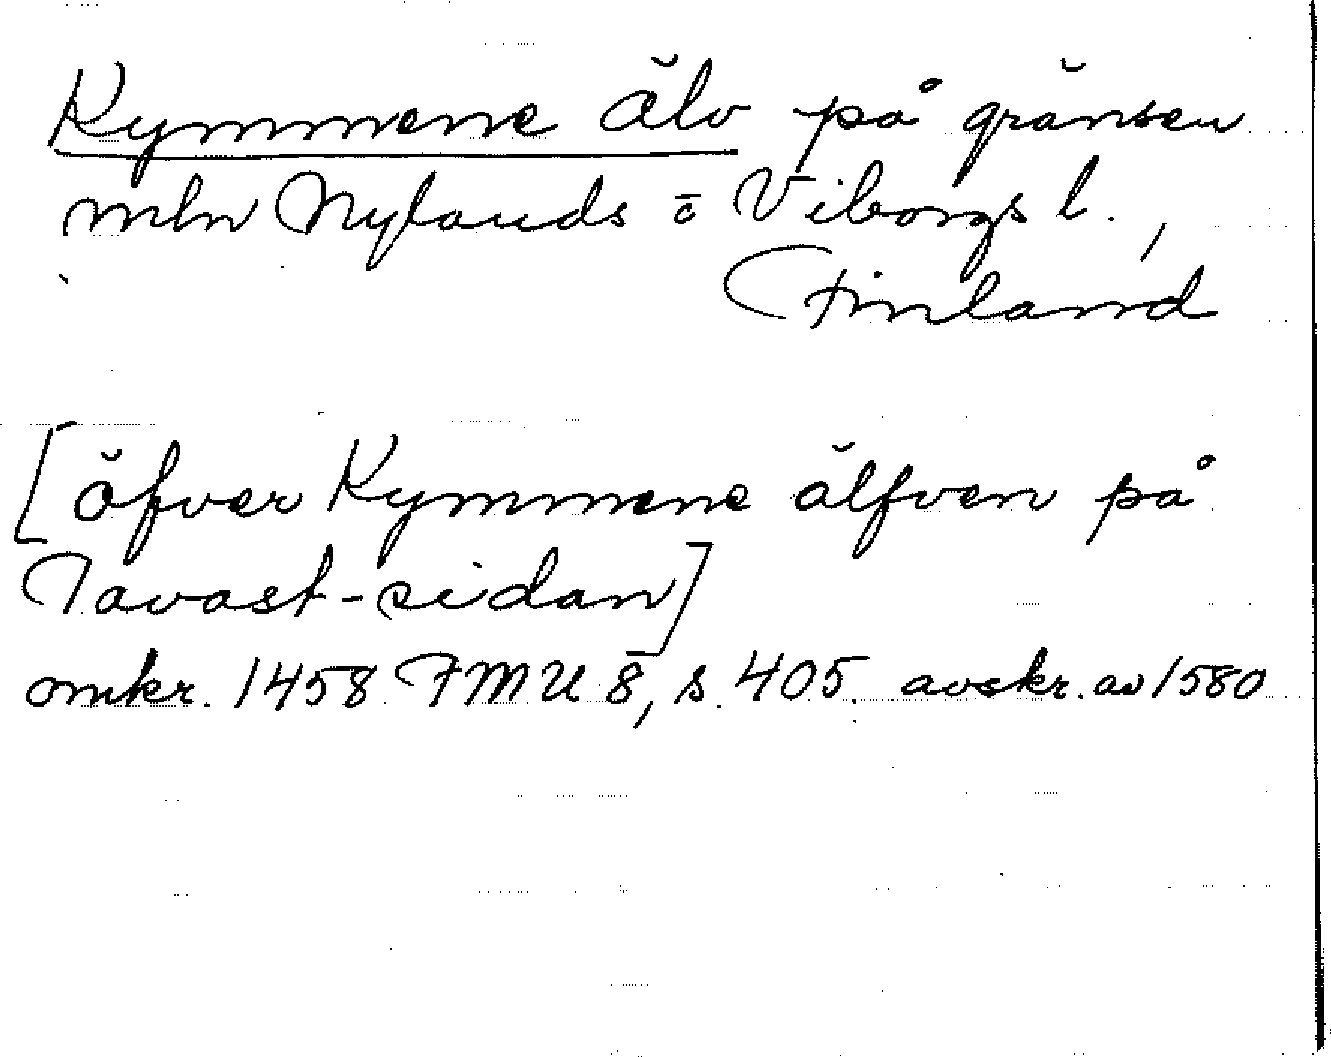 Kymmene älv på gränsen
mln Nylands o Viborgs l.,
Finland
[öfver Kymmene älfven på
Tavast-sidan]
omkr. 1458 FMU 8, s. 405. avskr. av 1580